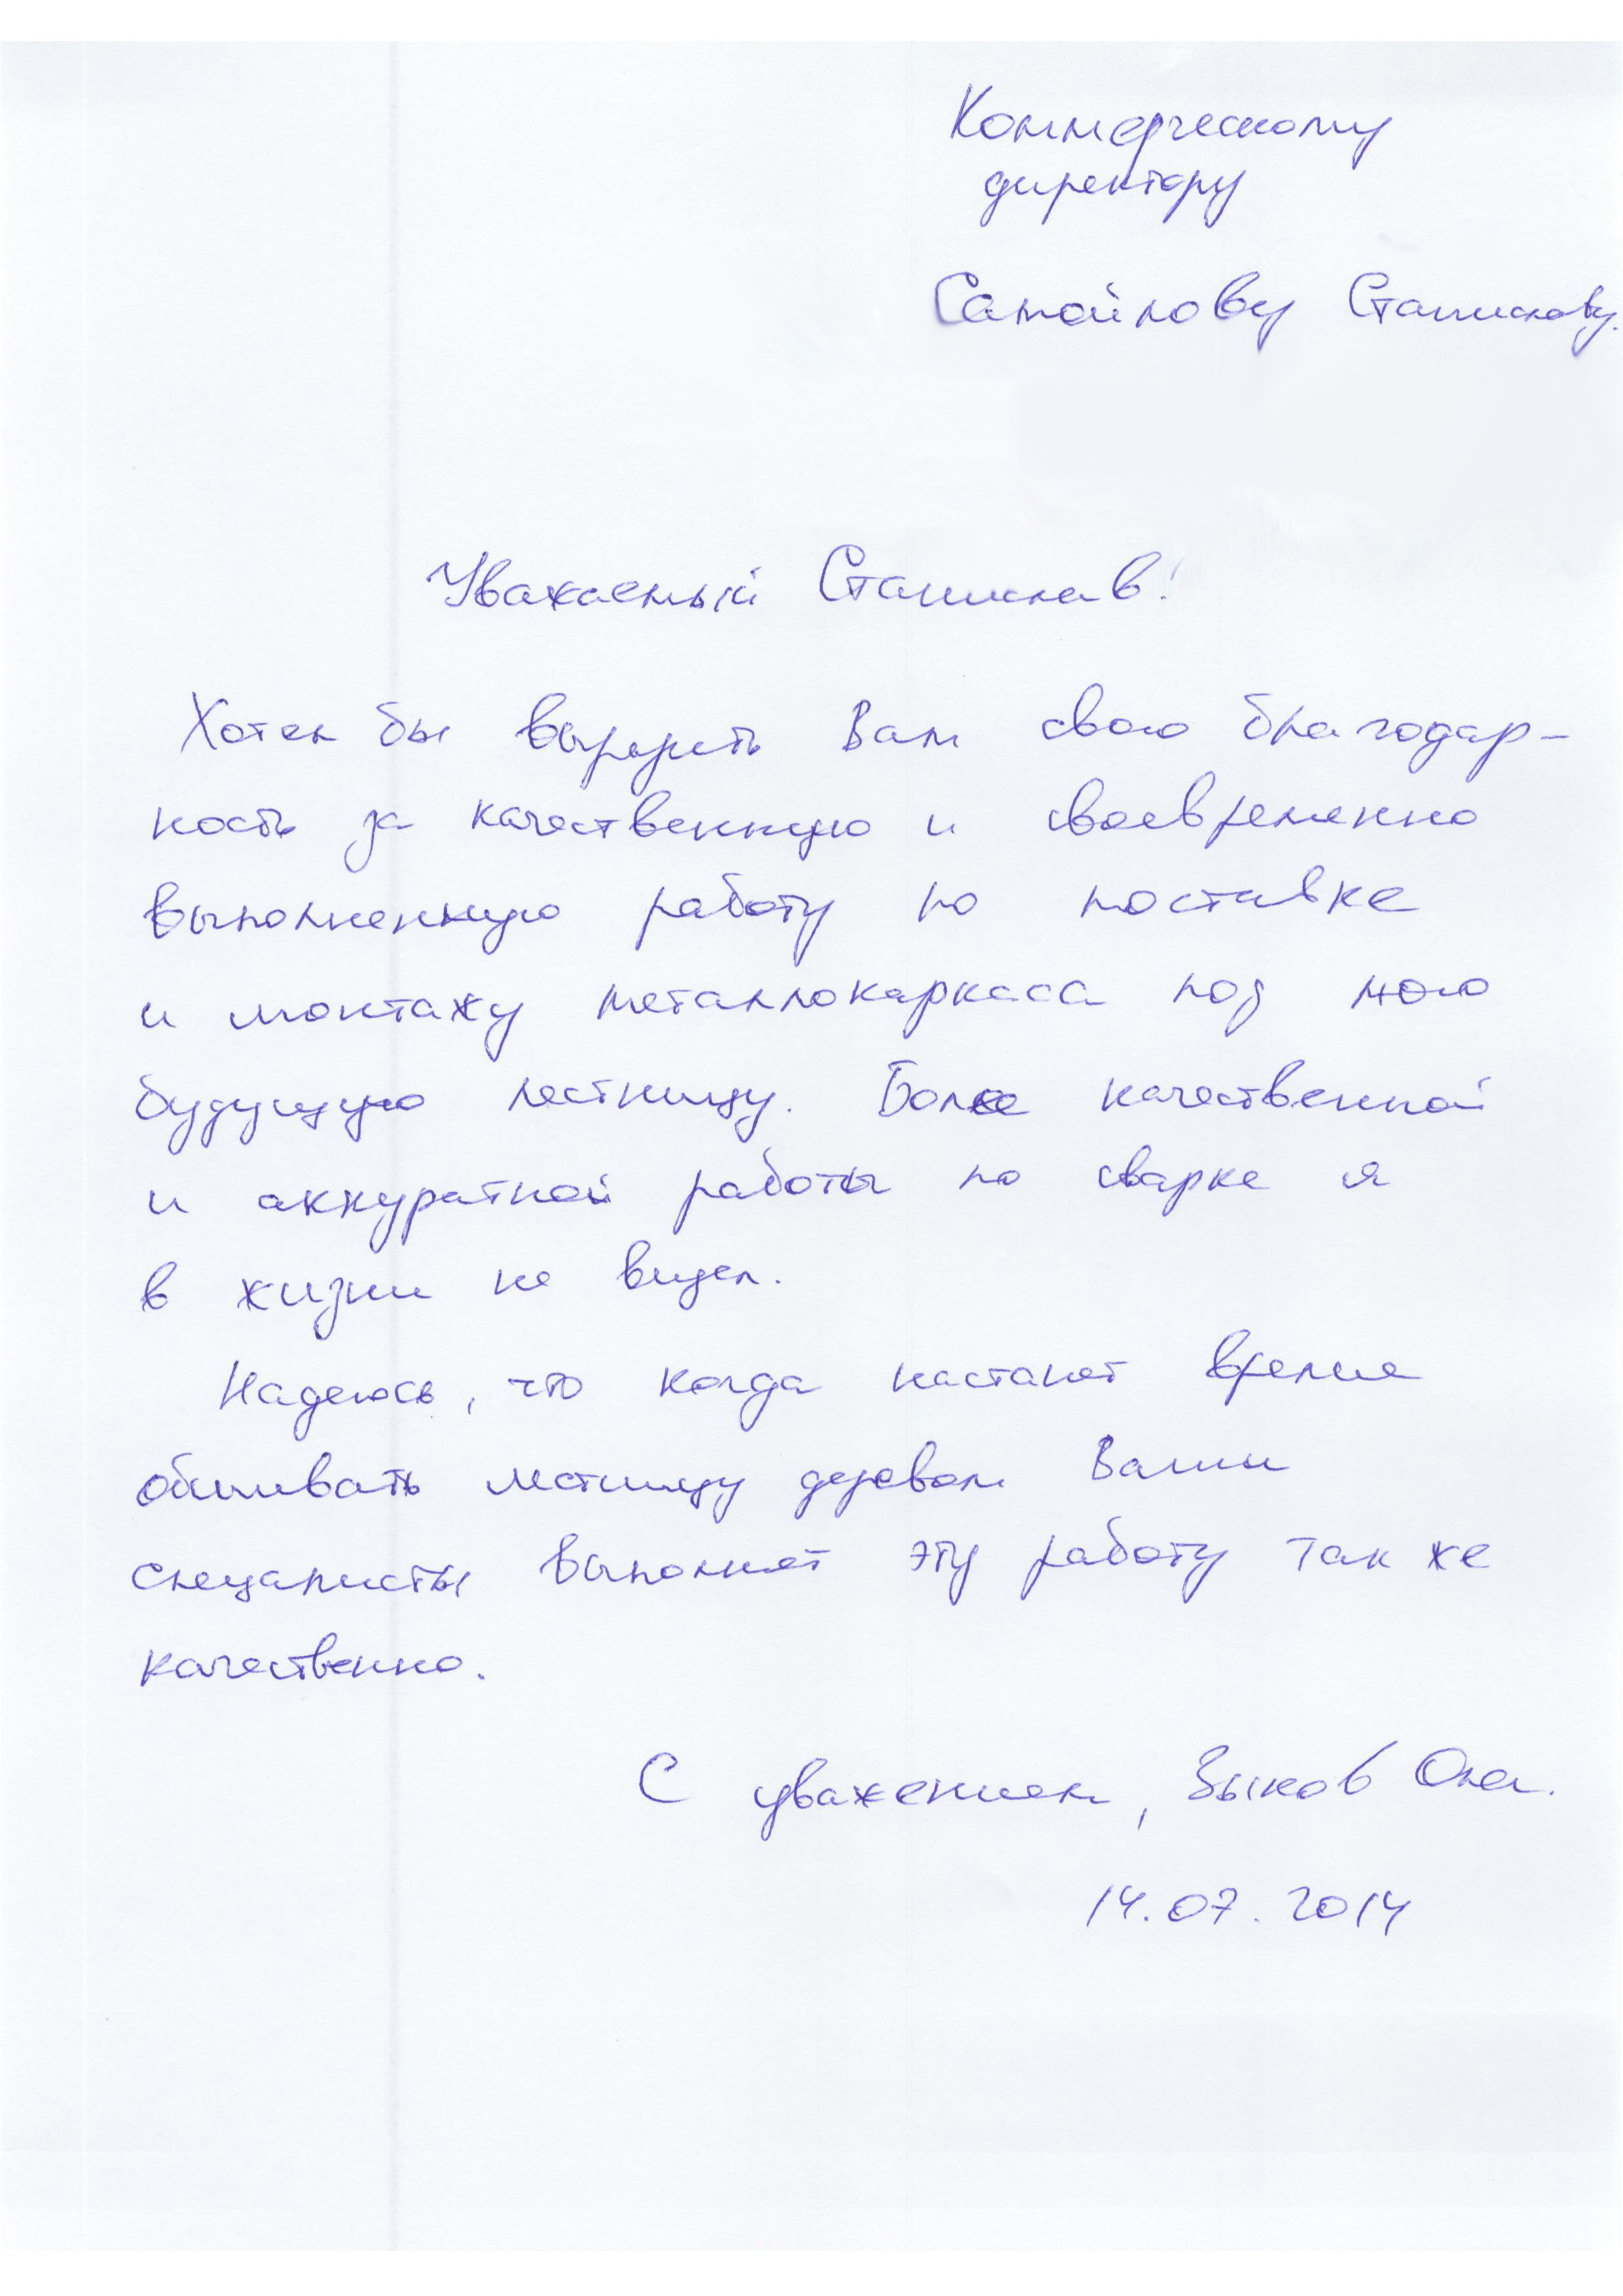 Коммерческому
директору
Самойлову Станиславу.
Уважаемый Станислав!
Хотел бы выразить Вам свою благодар-
ность за качественную и своевременно
выполненную работу по поставке
и монтажу металлокаркаса под мою
будущую лестницу. Более качественной
и аккуратной работы по сварке я
в жизни не видел.
Надеюсь, что когда настанет время
обшивать лестницу деревом Ваши
специалисты выполнят эту работу так же
качественно.
С уважением, Зыков
14.07.2014